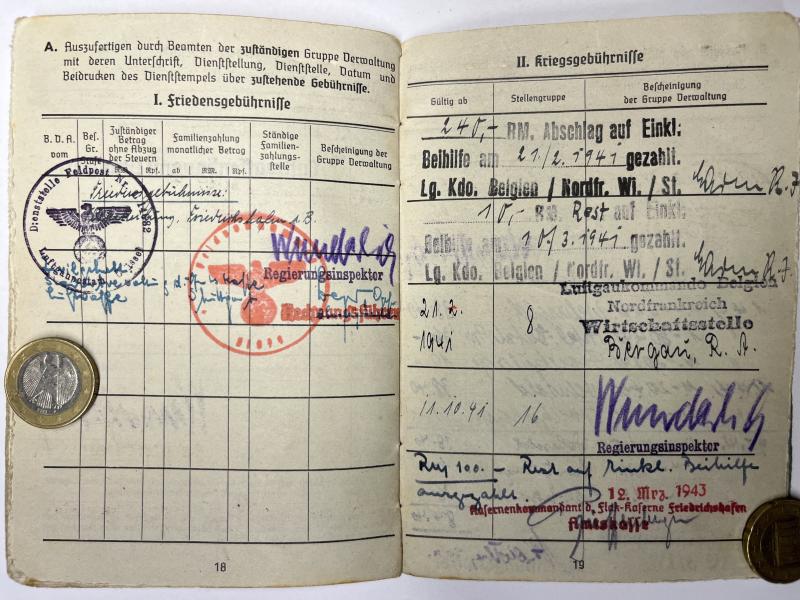 A. Auszufertigen durch Beamten der zuständigen Gruppe Verwaltung
mit deren Unterschrift, Dienststellung, Dienststelle, Datum und
Beidrucken des Dienststempels über zustehende Gebührnisse.
I. Friedensgebührnisse
B. D. A. vom
Bes. Gr. Stufe
Zuständiger Betrag ohne Abzug der Steuern
Familienzahlung monatlicher Betrag
Ständige Familienzahlungsstelle
Bescheinigung der Gruppe Verwaltung
RM. Rpf. ab RM. Rpf.
Dienststelle Feldpost
Friedensgebührnisse:
Friedrichshafen a. B.
Wunderlich
Regierungsinspektor
Rechnungsführer
18
II. Kriegsgebührnisse
Gültig ab
Stellengruppe
Bescheinigung der Gruppe Verwaltung
240,- RM. Abschlag auf Einkl:
Beihilfe am 21./2. 1941 gezahlt.
Lg. Kdo. Belgien / Nordfr. Wi. / St.
10,- RM. Rest auf Einkl:
Beihilfe am 10./3. 1941 gezahlt.
Lg. Kdo. Belgien / Nordfr. Wi. / St.
Luftgaukommando Belgien
Nordfrankreich
Wirtschaftsstelle
21. 2. 1941
8
11.10.41
16
Wunderlich
Regierungsinspektor
RM 100.- Rest auf Einkl. Beihilfe
ausgezahlt.
12. Mrz. 1943
Kasernenkommandant d. Flak-Kaserne Friedrichshafen
Amtskasse
19